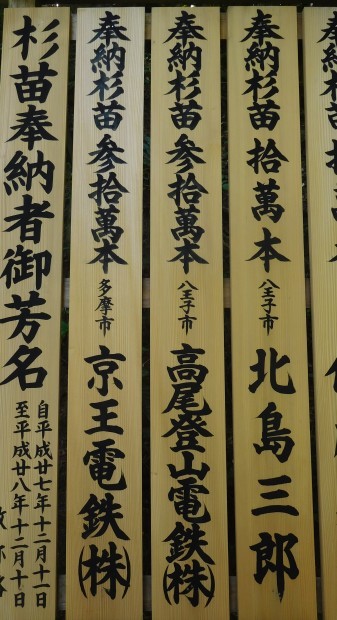 杉苗奉納者御芳名
自平成廿七年十二月十一日
至平成廿八年十二月十日
奉納杉苗参拾萬本 多摩市 京王電鉄(株)
奉納杉苗参拾萬本 八王子市 高尾登山電鉄(株)
奉納杉苗拾萬本 八王子市 北島三郎